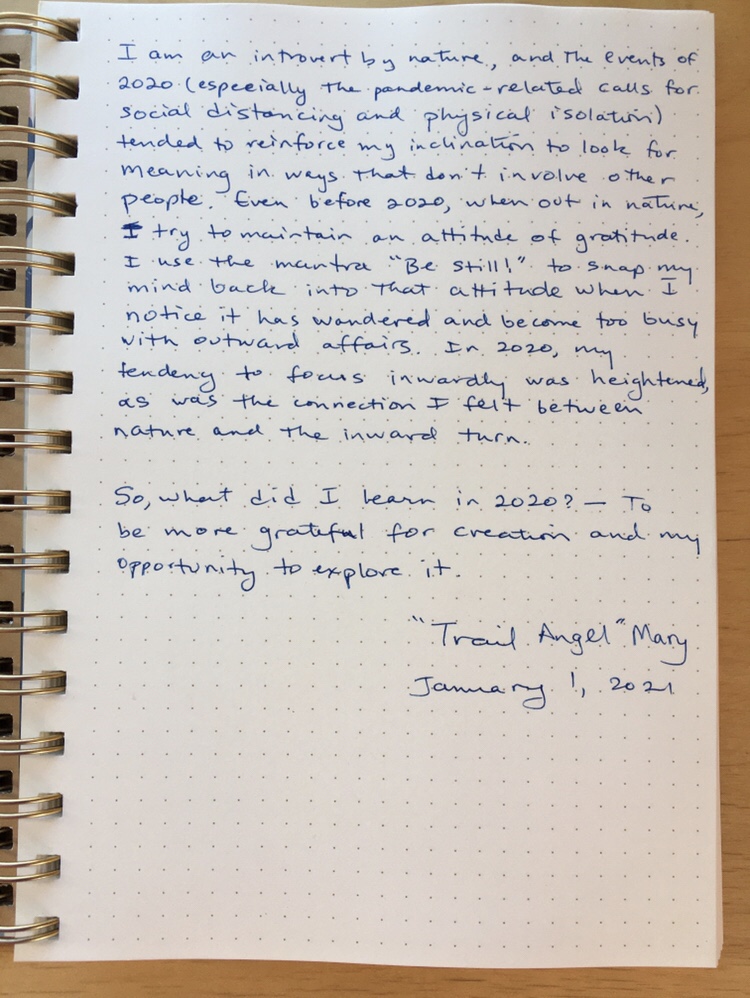 I am an introvert by nature, and the events of
2020 (especially the pandemic-related calls for
social distancing and physical isolation)
tended to reinforce my inclination to look for
meaning in ways that don't involve other
people. Even before 2020, when out in nature,
I try to maintain an attitude of gratitude.
I use the mantra "Be still!" to snap my
mind back into that attitude when I
notice it has wandered and become too busy
with outward affairs. In 2020, my
tendency to focus inwardly was heightened,
as was the connection I felt between
nature and the inward turn.
So, what did I learn in 2020? — To
be more grateful for creation and my
opportunity to explore it.
"Trail Angel" Mary
January 1, 2021